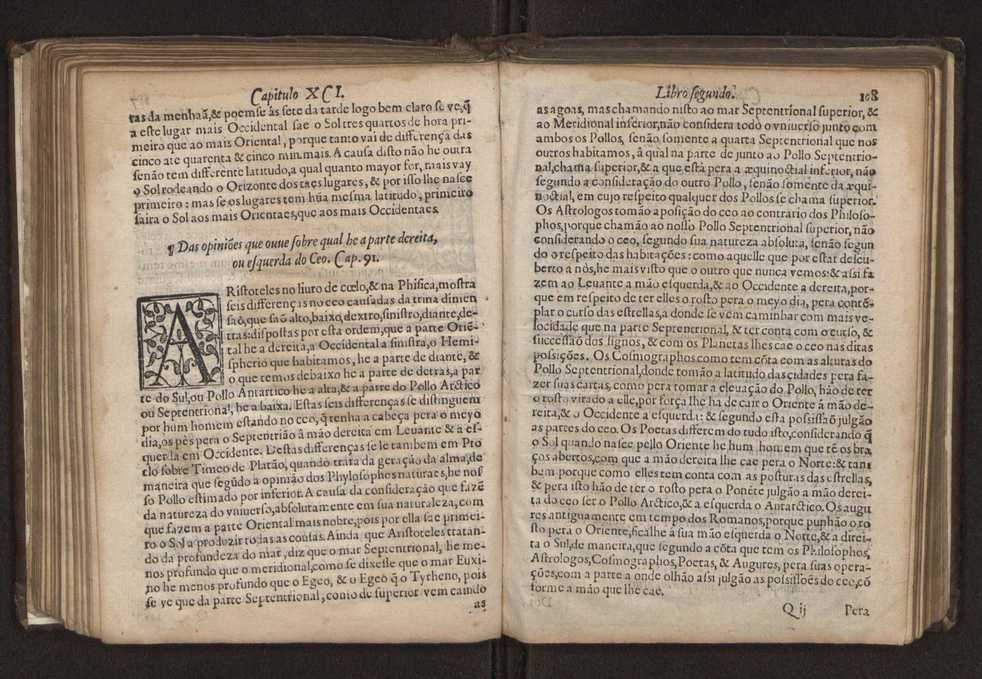 Capitulo XCI.
tas da menhaã, & poemse às sete da tarde logo bem claro se ve, q̃
a este lugar mais Occidental sae o Sol tres quartos de hora pri-
meiro que ao mais Oriental, porque tanto vai de differença das
cinco até quarenta & cinco min. mais. A causa disto não he outra
senão tem differente latitudo, a qual quanto mayor for, mais vay
o Sol rodeando o Orizonte dos taes lugares, & por isso lhe nasce
primeiro: mas se os lugares tem hũa mesma latitudo, primeiro
saira o Sol aos mais Orientaes, que aos mais Occidentaes.
¶ Das opiniões que ouue sobre qual he a parte dereita,
ou esquerda do Ceo. Cap. 91.
ARistoteles no liuro de cœlo, & na Phisica, mostra
seis differenças no ceo causadas da trina dimen
saõ, que saõ alto, baixo, dextro, sinistro, diante, de-
tras: dispostas por esta ordem, que a parte Oriẽ-
tal he a dereita, a Occidental a sinistra, o Hemi-
spherio que habitamos, he a parte de diante, &
o que temos debaixo he a parte de detras, a par
te do Sul, ou Pollo Antartico he a alta, & a parte do Pollo Arctico
ou Septentrional, he a baixa. Estas seis differenças se distinguem
por hum homem estando no ceo, q̃ tenha a cabeça pera o meyo
dia, os pès pera o Septentrião â mão dereita em Leuante & a es-
querda em Occidente. Destas differenças se le tambem em Pro
clo sobre Timeo de Platão, quando trata da geração da alma, de
maneira que segũdo a opinião dos Phylosophos naturaes, he nos
so Pollo estimado por inferior. A causa da consideração que fazẽ
da natureza do vniuerso, absolutamente em sua naturaleza, com
que fazem a parte Oriental mais nobre, pois por ella sae primei-
ro o Sol a produzir todas as cousas. Ainda que Aristoteles tratan-
do da profundeza do mar, diz que o mar Septentrional, he me-
nos profundo que o meridional, como se dixesse que o mar Euxi-
no he menos profundo que o Egeo, & o Egeo q̃ o Tyrheno, pois
se ve que da parte Septentrional, como de superior vem caindo
as
Libro segundo. 108
as agoas, mas chamando nisto ao mar Septentrional superior, &
ao Meridional inferior, não considera todo o vniuerso junto com
ambos os Pollos, senão somente a quarta Septentrional que nos
outros habitamos, â qual na parte de junto ao Pollo Septentrio-
nal, chama superior, & a que està pera a æquinoctial inferior, não
segundo a consideração do outro Pollo, senão somente da æqui-
noctial, em cujo respeito qualquer dos Pollos se chama superior.
Os Astrologos tomão a posição do ceo ao contrario dos Philoso-
phos, porque chamão ao nosso Pollo Septentrional superior, não
considerando o ceo, segundo sua natureza absoluta, senão segun
do o respeito das habitações: como aquelle que por estar descu-
berto a nòs, he mais visto que o outro que nunca vemos: & assi fa
zem ao Leuante a mão esquerda, & ao Occidente a dereita, por-
que em respeito de ter elles o rosto pera o meyo dia, pera contẽ-
plar o curso das estrellas, a donde se vem caminhar com mais ve-
locidade que na parte Septentrional, & ter conta com o curso, &
successaõ dos signos, & com os Planetas lhes cae o ceo nas ditas
posições. Os Cosmographos como tem cõta com as alturas do
Pollo Septentrional, donde tomão a latitudo das cidades pera fa-
zer suas cartas, como pera tomar a eleuação do Pollo, hão de ter
o rosto virado a elle, por força lhe ha de cair o Oriente â mão de-
reita, & o Occidente a esquerda: & segundo esta possissaõ julgão
as partes do ceo. Os Poetas differem do tudo isto, considerando q̃
o Sol quando nasce pello Oriente he hum homem que tẽ os bra
ços abertos, com que a mão dereita lhe cae pera o Norte: & tam
bem porque como elles tem conta com as posturas das estrellas,
& pera isto hão de ter o rosto pera o Ponẽte julgão a mão derei-
ta do ceo ser o Pollo Arctico, & a esquerda o Antarctico. Os augu
res antiguamente em tempo dos Romanos, porque punhão o ro
sto pera o Oriente, ficalhe à sua mão esquerda o Norte, & a direi-
ta o Sul, de maneira, que segundo a cõta que tem os Philosophos,
Astrologos, Cosmographos, Poetas, & Augures, pera suas opera-
ções, com a parte a onde olhão assi julgão as possissões do ceo, cõ
forme a mão que lhe cae.
Q ij Pera